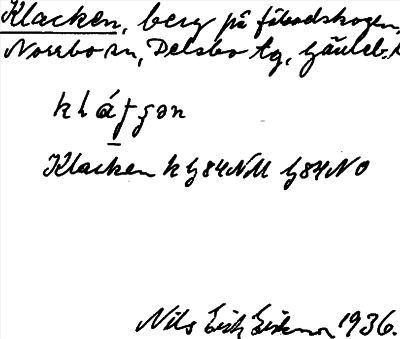 Klacken, berg på fäbodskogen,
Norrbo sn, Delsbo tg, Gävleb. l
Klacken k G84NM G84NO
Nils Erik Eriksson 1936.